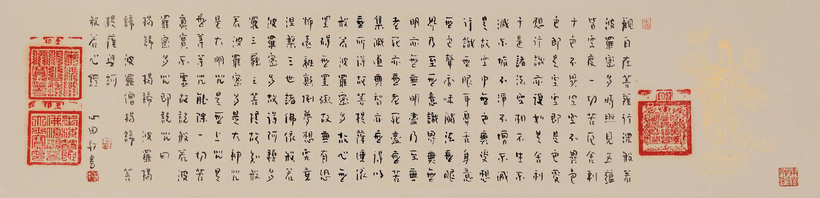 觀自在菩薩行深般若
波羅蜜多時照見五蘊
皆空度一切苦厄舍利
子色不異空空不異色
色即是空空即是色受
想行識亦復如是舍利
子是諸法空相不生不
滅不垢不淨不增不減
是故空中無色無受想
行識無眼耳鼻舌身意
無色聲香味觸法無眼
界乃至無意識界無無
明亦無無明盡乃至無
老死亦無老死盡無苦
集滅道無智亦無得以
無所得故菩提薩埵依
般若波羅蜜多故心無
罣礙無罣礙故無有恐
怖遠離顛倒夢想究竟
涅槃三世諸佛依般若
波羅蜜多故得阿耨多
羅三藐三菩提故知般
若波羅蜜多是大神咒
是大明咒是無上咒是
無等等咒能除一切苦
真實不虛故說般若波
羅蜜多咒即說咒曰
揭諦 揭諦 波羅揭
諦 波羅僧揭諦 菩
提薩婆訶
般若心經